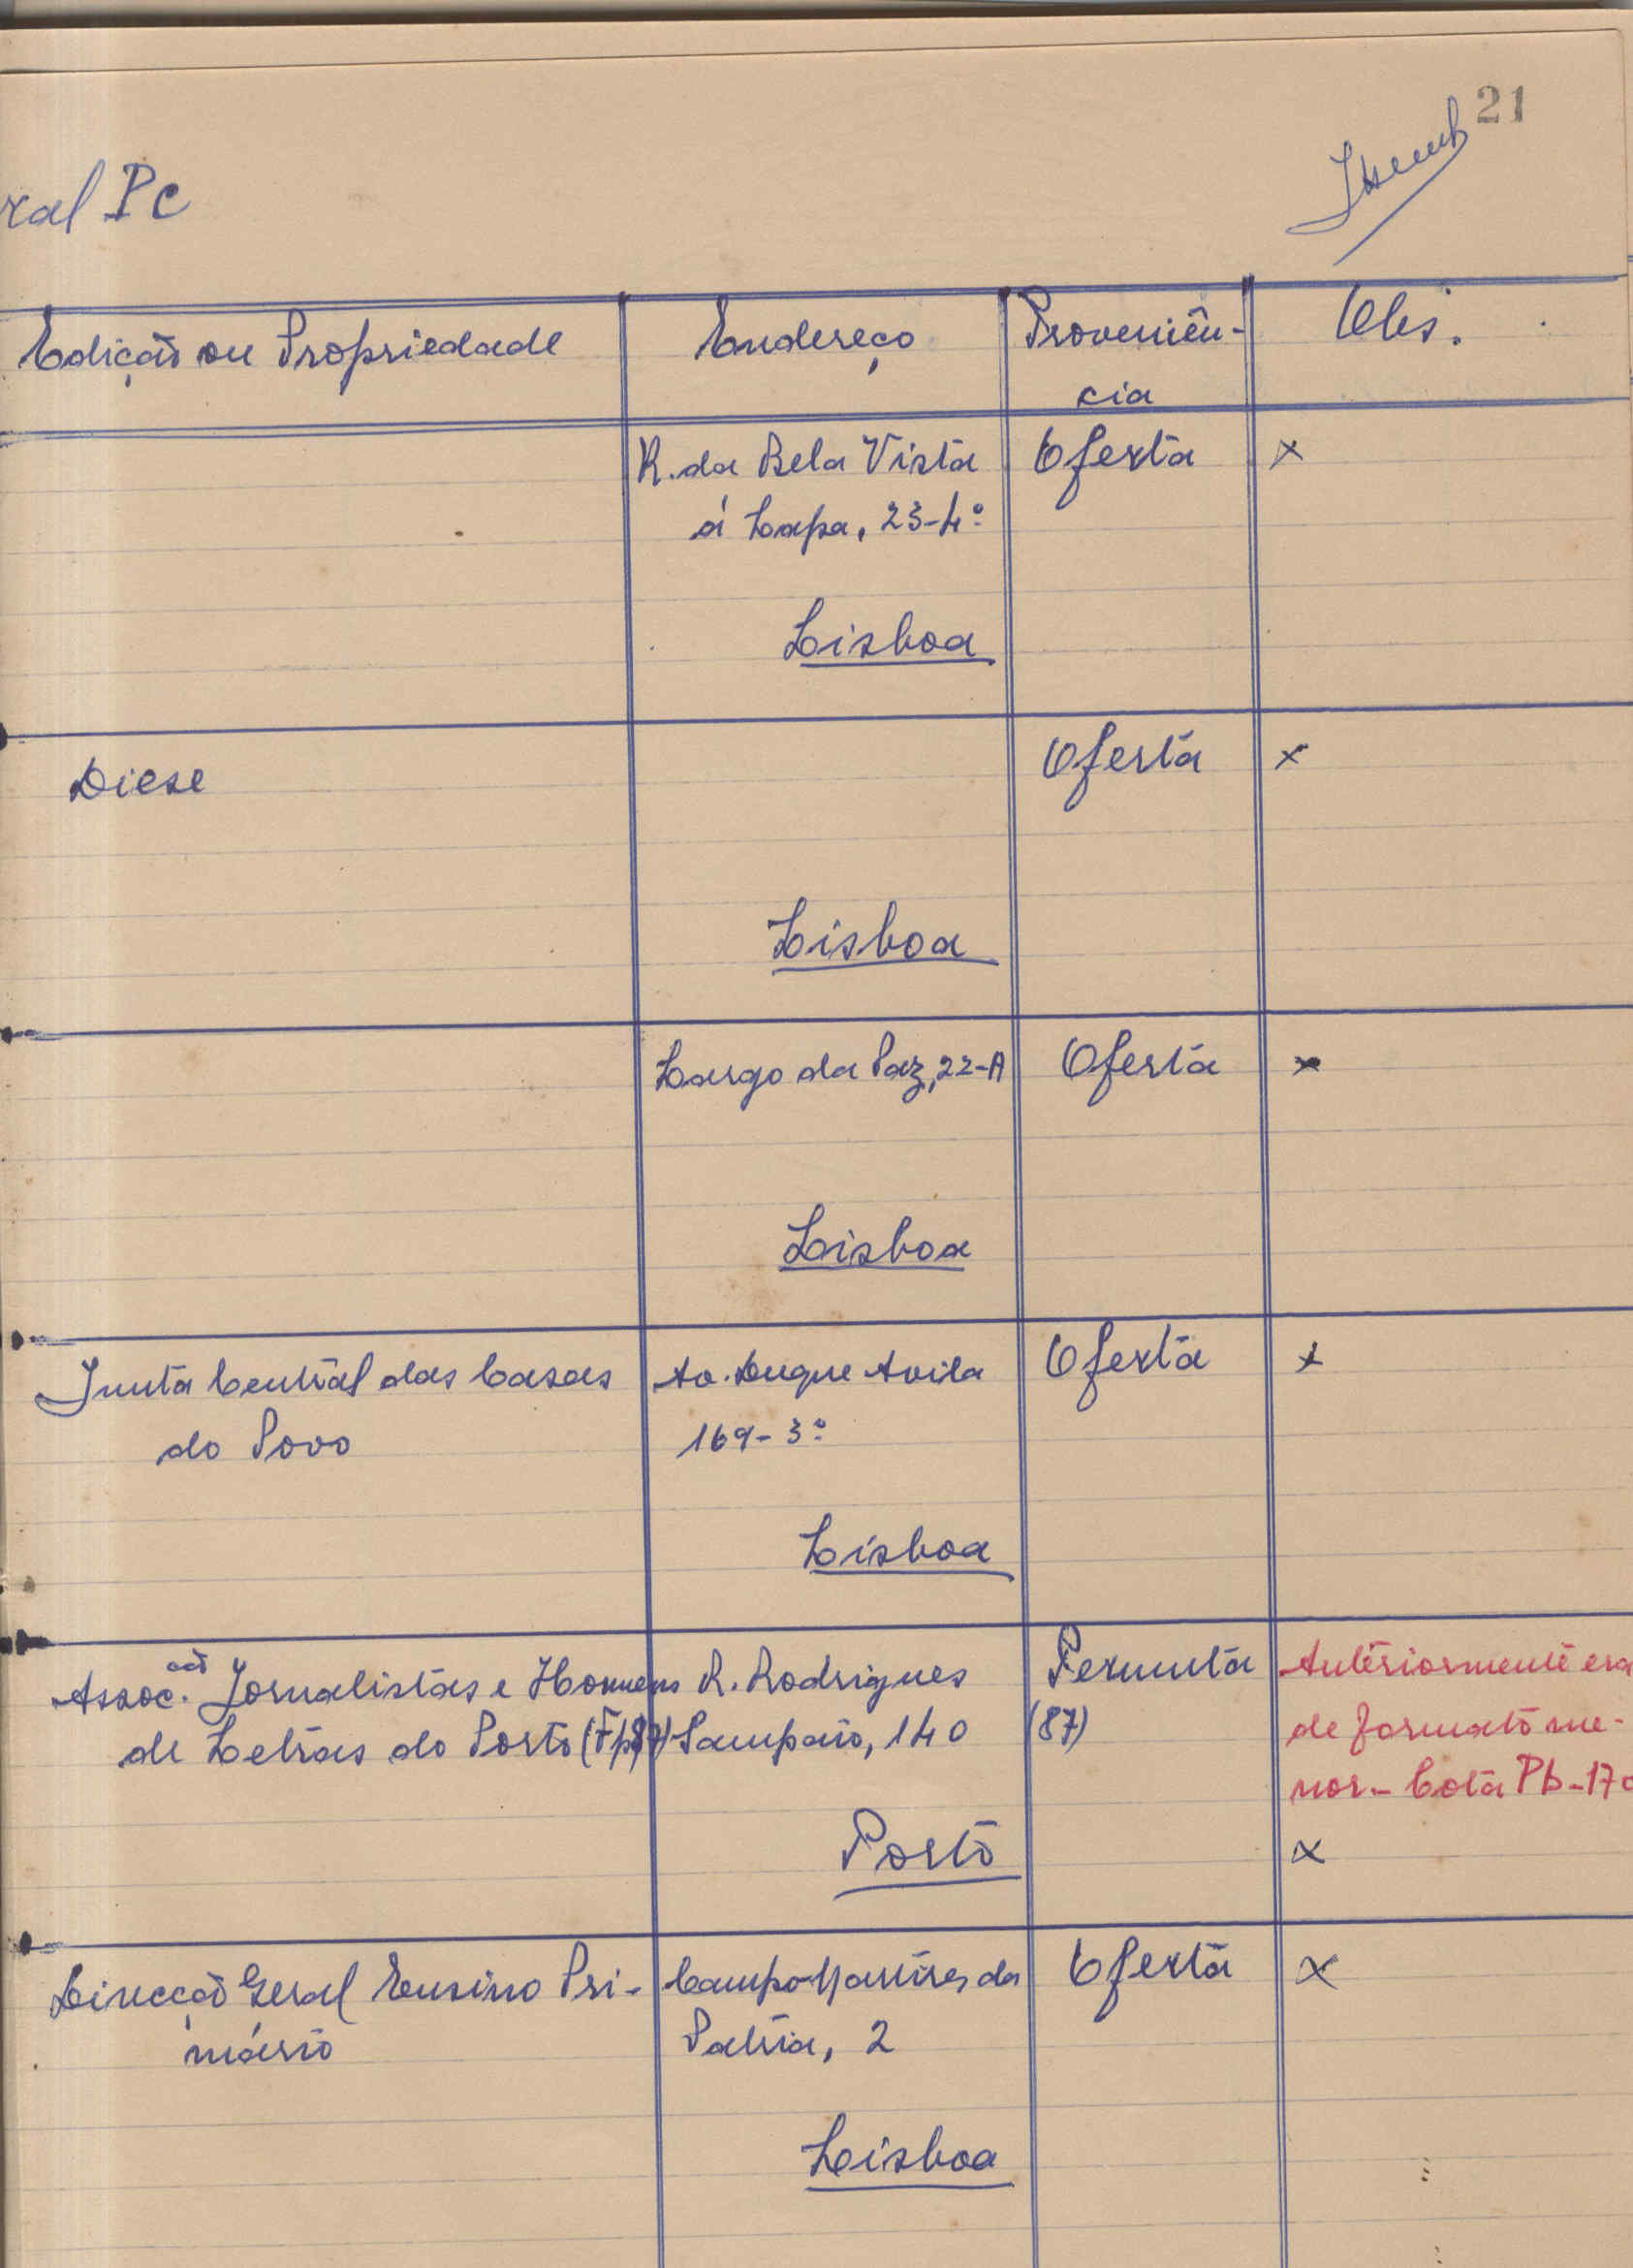 21
ral Pc
Edição ou Propriedade
Endereço
Proveniên-
cia
Obs.
R. da Bela Vista
á Lapa, 23-4º
Lisboa
Oferta
x
Diese
Lisboa
Oferta
x
Largo da Paz, 22-A
Lisboa
Oferta
x
Junta Central das Casas
do Povo
Av. Duque Avila
169-3º
Lisboa
Oferta
x
Assoc.ação Jornalistas e Homens
de Letras do Porto (Fp87)
R. Rodrigues
Sampaio, 140
Porto
Permuta
(87)
Anteriormente era
de formato me-
nor - Cota Pb-170
x
Direcção Geral Ensino Pri-
mário
Campo Martires da
Patria, 2
Lisboa
Oferta
x